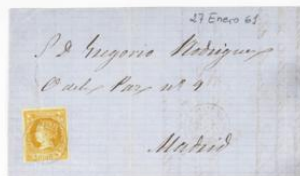 27 Enero 61
S. D. Gregorio Rodriguez
C. de la Paz nº 9
Madrid